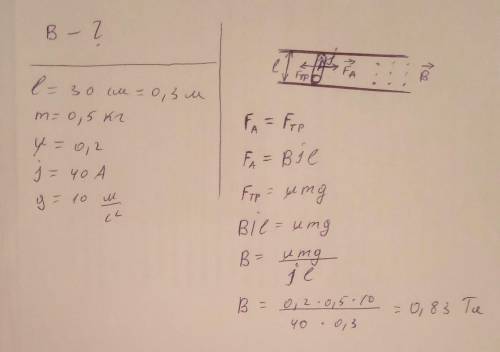 B - ?
l = 30 см = 0,3 м
m = 0,5 кг
μ = 0,2
j = 40 А
g = 10 м/с²
l Fтр j FА B
FА = Fтр
FА = Bjl
Fтр = μmg
Bjl = μmg
B = μmg / jl
B = 0,2 · 0,5 · 10 / 40 · 0,3 = 0,83 Тл